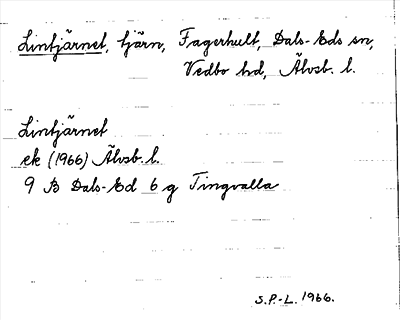 Lintjärnet, tjärn, Fagerhult, Dals-Eds sn,
Vedbo hd, Älvsb. l.
Lintjärnet
ek (1966) Älvsb. l.
9 B Dals-Ed 6 g Tingvalla
S.P.-L. 1966.